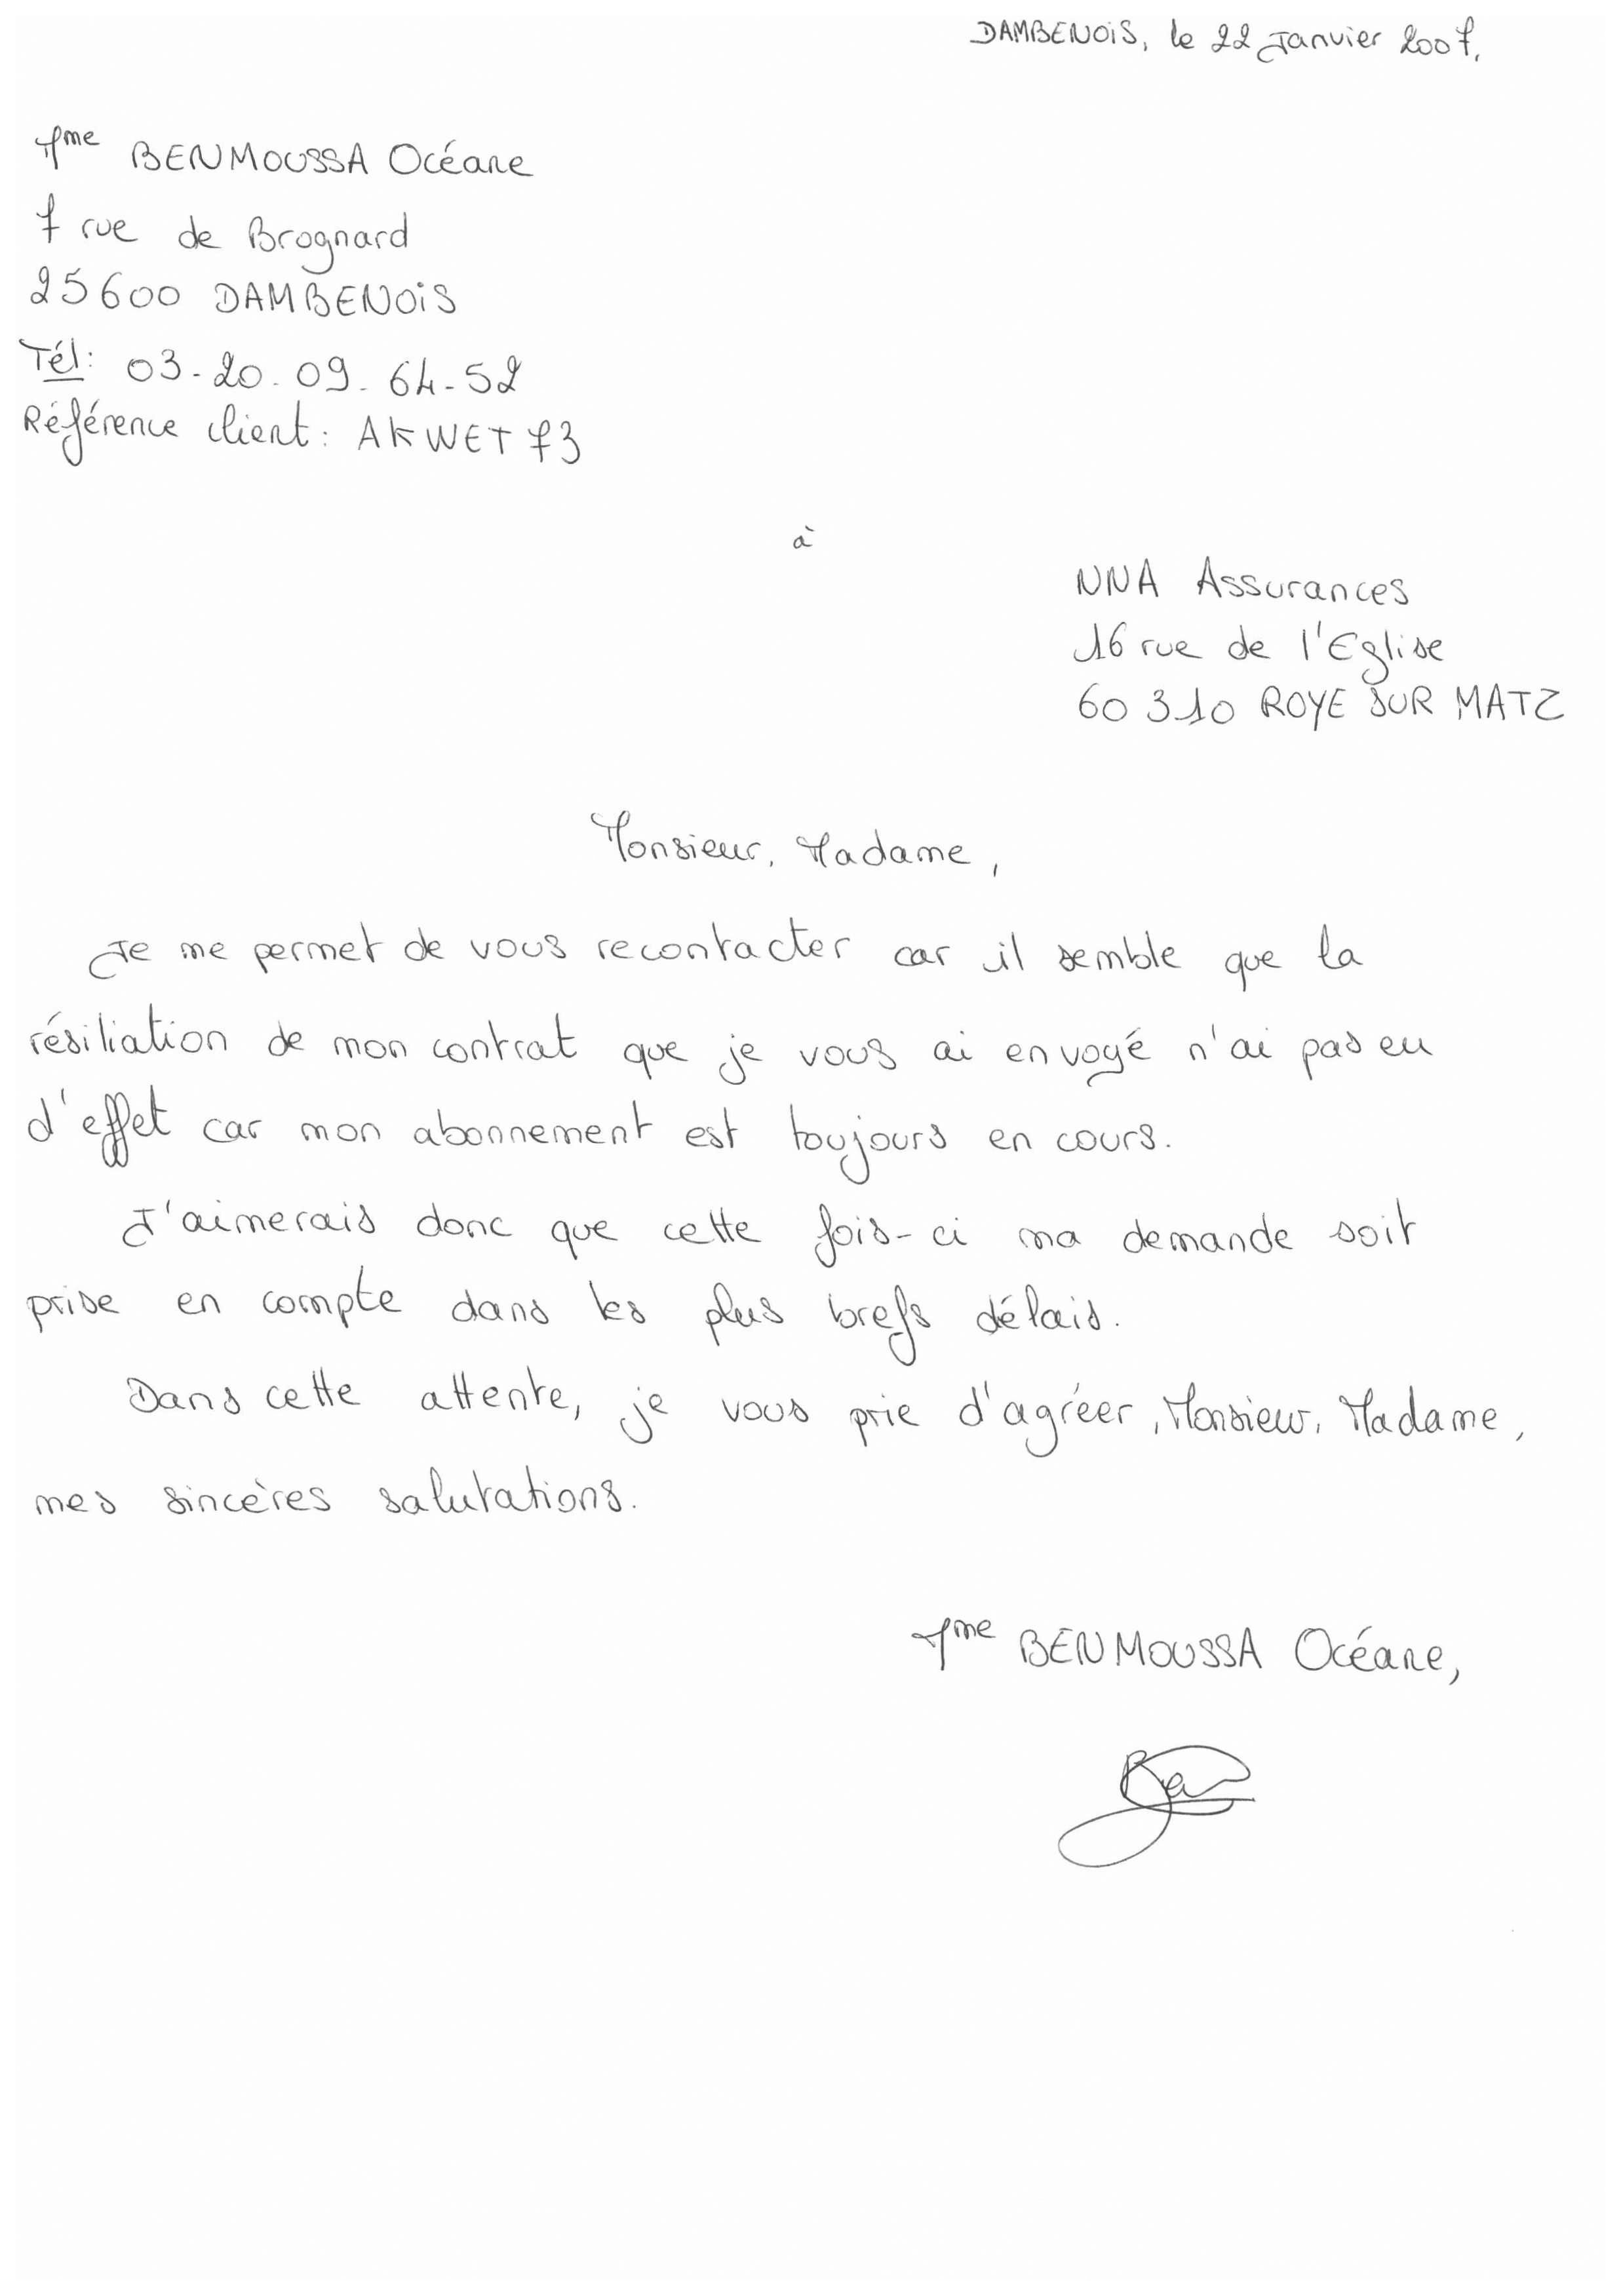 DAMBENOIS, le 22 Janvier 2007.
Mme BENMOUSSA Océane
7 rue de Brognard
25600 DAMBENOIS
Tél: 03-20.09.64-52
Référence client: AKWET73
à
NNA Assurances
16 rue de l'Eglise
60310 ROYE SUR MATZ
Monsieur, Madame,
Je me permet de vous recontacter car il semble que la
résiliation de mon contrat que je vous ai envoyé n'ai pas eu
d'effet car mon abonnement est toujours en cours.
J'aimerais donc que cette fois-ci ma demande soit
prise en compte dans les plus brefs délais.
Dans cette attente, je vous prie d'agréer, Monsieur, Madame,
mes sincères salutations.
Mme BENMOUSSA Océane,
Ben